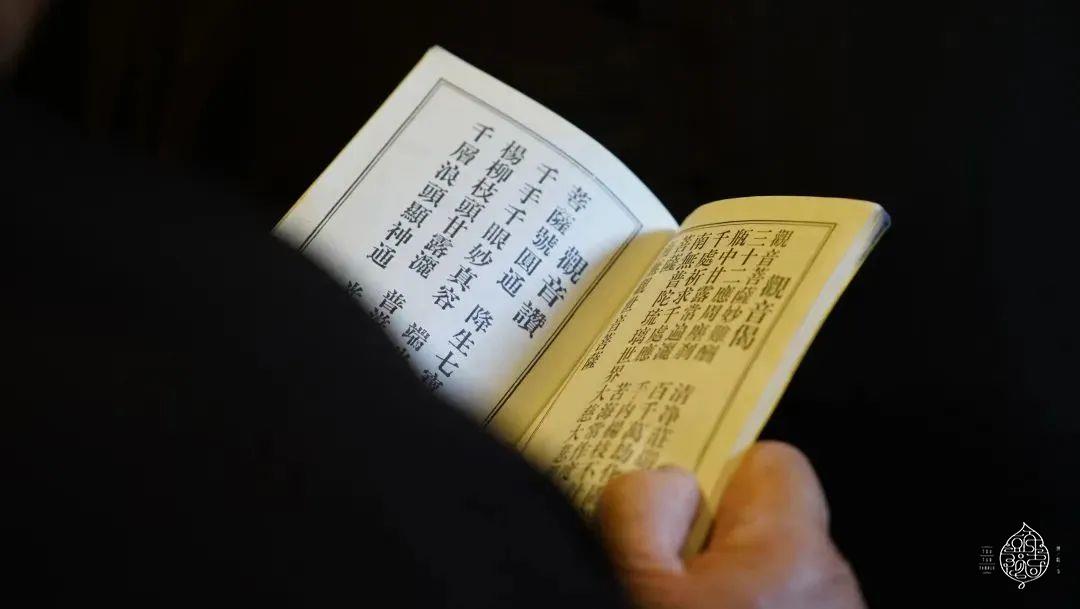 觀音偈
觀音菩薩妙難酬 清淨莊
三十二應周塵剎 百千萬劫
瓶中甘露常遍灑 手內楊枝不
千處祈求千處應 苦海常作
南無普陀琉璃世界大慈大悲
觀世音菩薩
觀音讚
菩薩號圓通 降生七寶
千手千眼妙真容 端
楊柳枝頭甘露灑 普
千層浪頭顯神通
TEMPLE